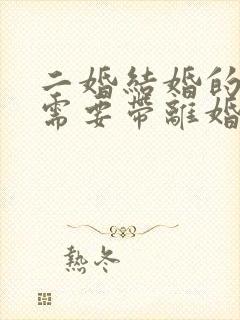 二婚結婚的
需要帶離婚
熱冬